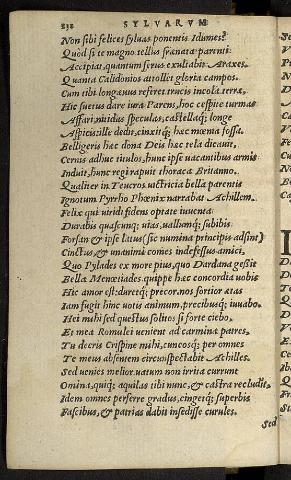 232 SYLVARVM
Non sibi felices syluas ponentis Idumes?
Quòd si te magno tellus frænata parenti
Accipiat, quantum ferus exultabit Araxes.
Quanta Calidonios attollet gloria campos.
Cum tibi longæuus referet trucis incola terræ,
Hic suetus dare iura Parens, hoc cespite turmas
Affari, nitidas speculas, castellaq; longe
Aspicis: ille dedit, cinxitq; hæc mœnia fossa.
Belligeris hæc dona Deis hæc tela dicauit,
Cernis adhuc titulos, hunc ipse uacantibus armis
Induit, hunc regi rapuit thoraca Britanno.
Qualiter in Teucros uictricia bella parentis
Ignotum Pyrrho Phœnix narrabat Achillem.
Felix qui uiridi fidens optate iuuenta
Durabis quascunq; uias, uallumq; subibis
Forsan & ipse latus (sic numina principis adsint)
Cinctus, & unanimi comes indefessus amici,
Quo Pylades ex more pius, quo Dardana gessit
Bella Menœtiades, quippe hæc concordia uobis
Hic amor est: dureq; precor, nos fortior ætas
Iam fugit hinc uotis animum, precibusq; iuuabo.
Hei mihi sed quæstus solitos si forte ciebo.
Et mea Romulei uenient ad carmina patres,
Tu deeris Crispine mihi, cuneosq; per omnes
Te meus absentem circumspectabit Achilles.
Sed uenies melior, uatum non irrita currunt
Omina, quiq; aquilas tibi nunc, & castra recludit.
Idem omnes perferre gradus, cingereq; superbis
Fascibus, & patrias dabit insedisse curules.
Sed